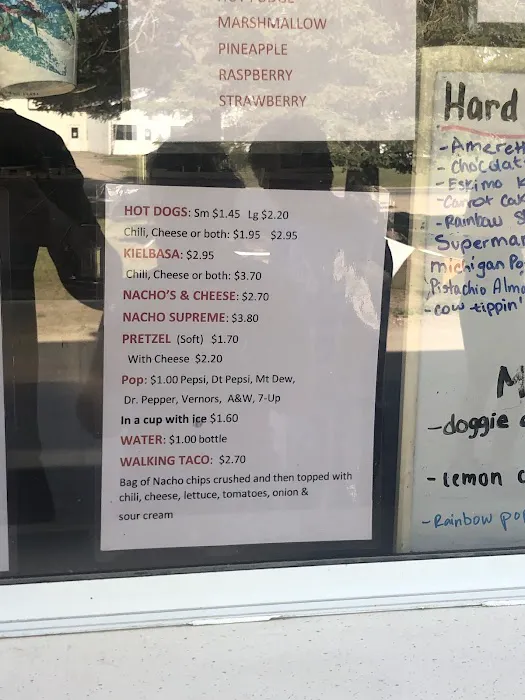 MARSHMALLOW
PINEAPPLE
RASPBERRY
STRAWBERRY
HOT DOGS: Sm $1.45 Lg $2.20
Chili, Cheese or both: $1.95 $2.95
KIELBASA: $2.95
Chili, Cheese or both: $3.70
NACHO'S & CHEESE: $2.70
NACHO SUPREME: $3.80
PRETZEL (Soft) $1.70
With Cheese $2.20
Pop: $1.00 Pepsi, Dt Pepsi, Mt Dew,
Dr. Pepper, Vernors, A&W, 7-Up
In a cup with ice $1.60
WATER: $1.00 bottle
WALKING TACO: $2.70
Bag of Nacho chips crushed and then topped with
chili, cheese, lettuce, tomatoes, onion &
sour cream
Hard
- Amerett
- Chocolat
- Eskimo
- Carrot cak
- Rainbow S
Superman
michigan Po
Pistachio Almo
- cow tippin'
- doggie
- lemon
- Rainbow po